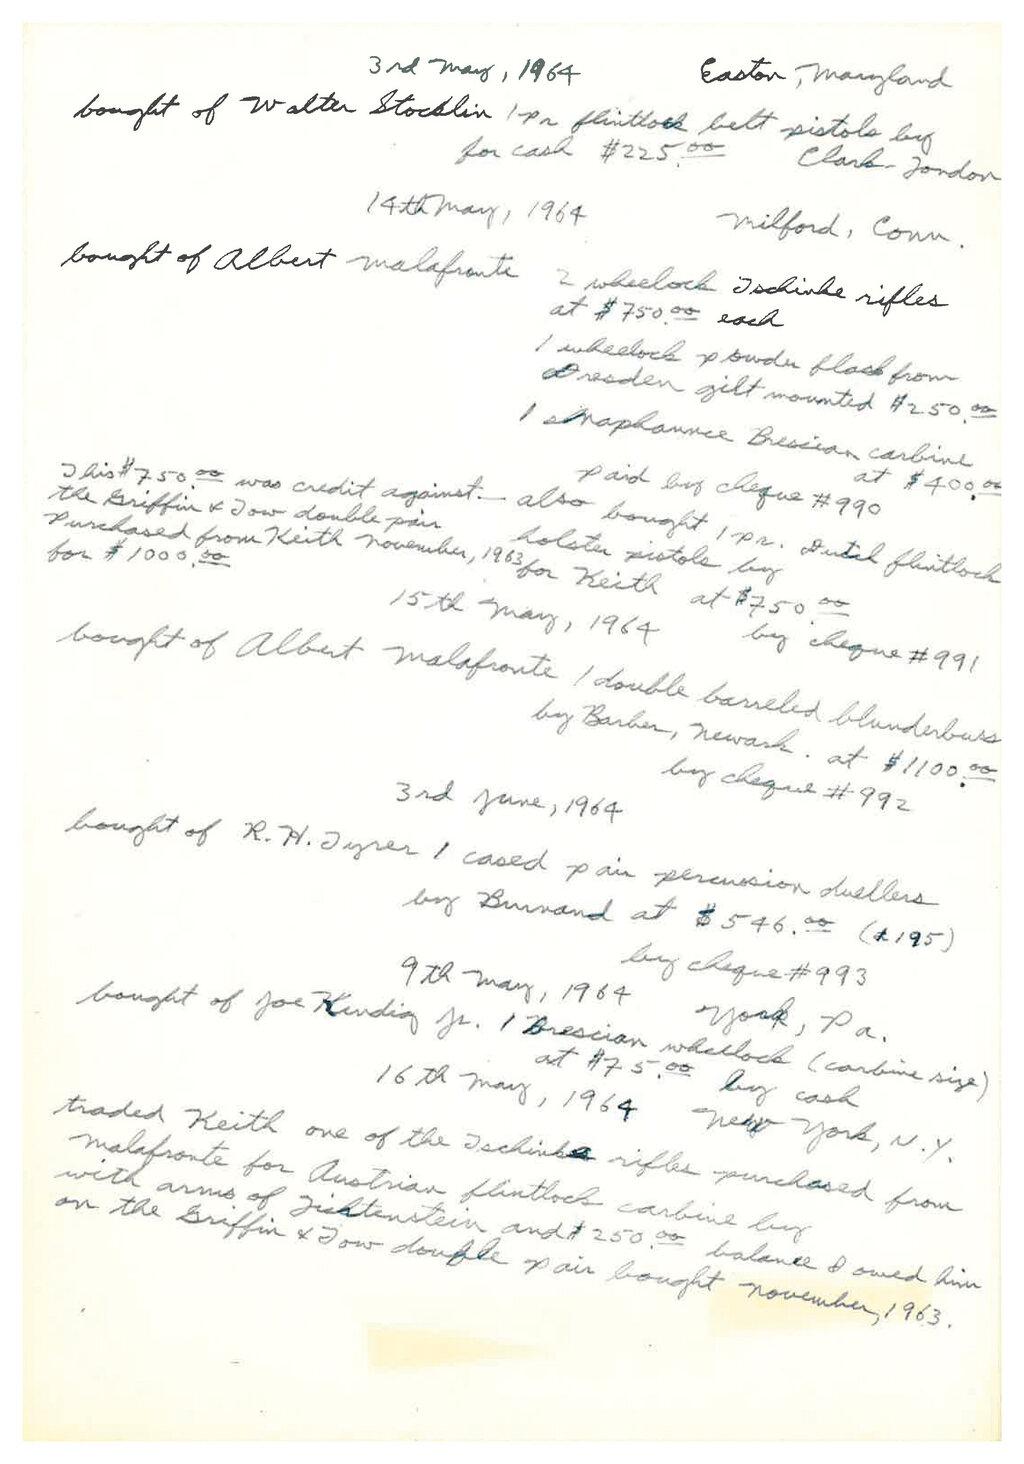 3rd May, 1964 Easton, Maryland
bought of Walter Stocklin 1 pr flintlock belt pistols by
for cash $225.00 Clark-London
14th May, 1964 Milford, Conn.
bought of Albert Malafronte 2 wheelock Tschinke rifles
at $750.00 each
1 wheelock powder flask from
Dresden gilt mounted $250.00
1 snaphaunce Brescian carbine
at $400.00
paid by cheque #990
This $750.00 was credit against — also bought 1 pr. Dutch flintlock
the Griffin & Tow double pair holster pistols by
purchased from Keith November, 1963 for Keith at $750.00
for $1000.00 by cheque #991
15th May, 1964
bought of Albert Malafronte 1 double barreled blunderbuss
by Barber, Newark. at $1100.00
by cheque #992
3rd June, 1964
bought of R. H. Tyrer 1 cased pair percussion duellers
by Burnand at $546.00 (£195)
by cheque #993
9th May, 1964 York, Pa.
bought of Joe Kindig Jr. 1 Brescian wheellock (carbine size)
at $75.00 by cash
16th May, 1964 New York, N.Y.
traded Keith one of the Tschinke rifles purchased from
Malafronte for Austrian flintlock carbine by
with arms of Lichtenstein and $250.00 balance I owed him
on the Griffin & Tow double pair bought November, 1963.